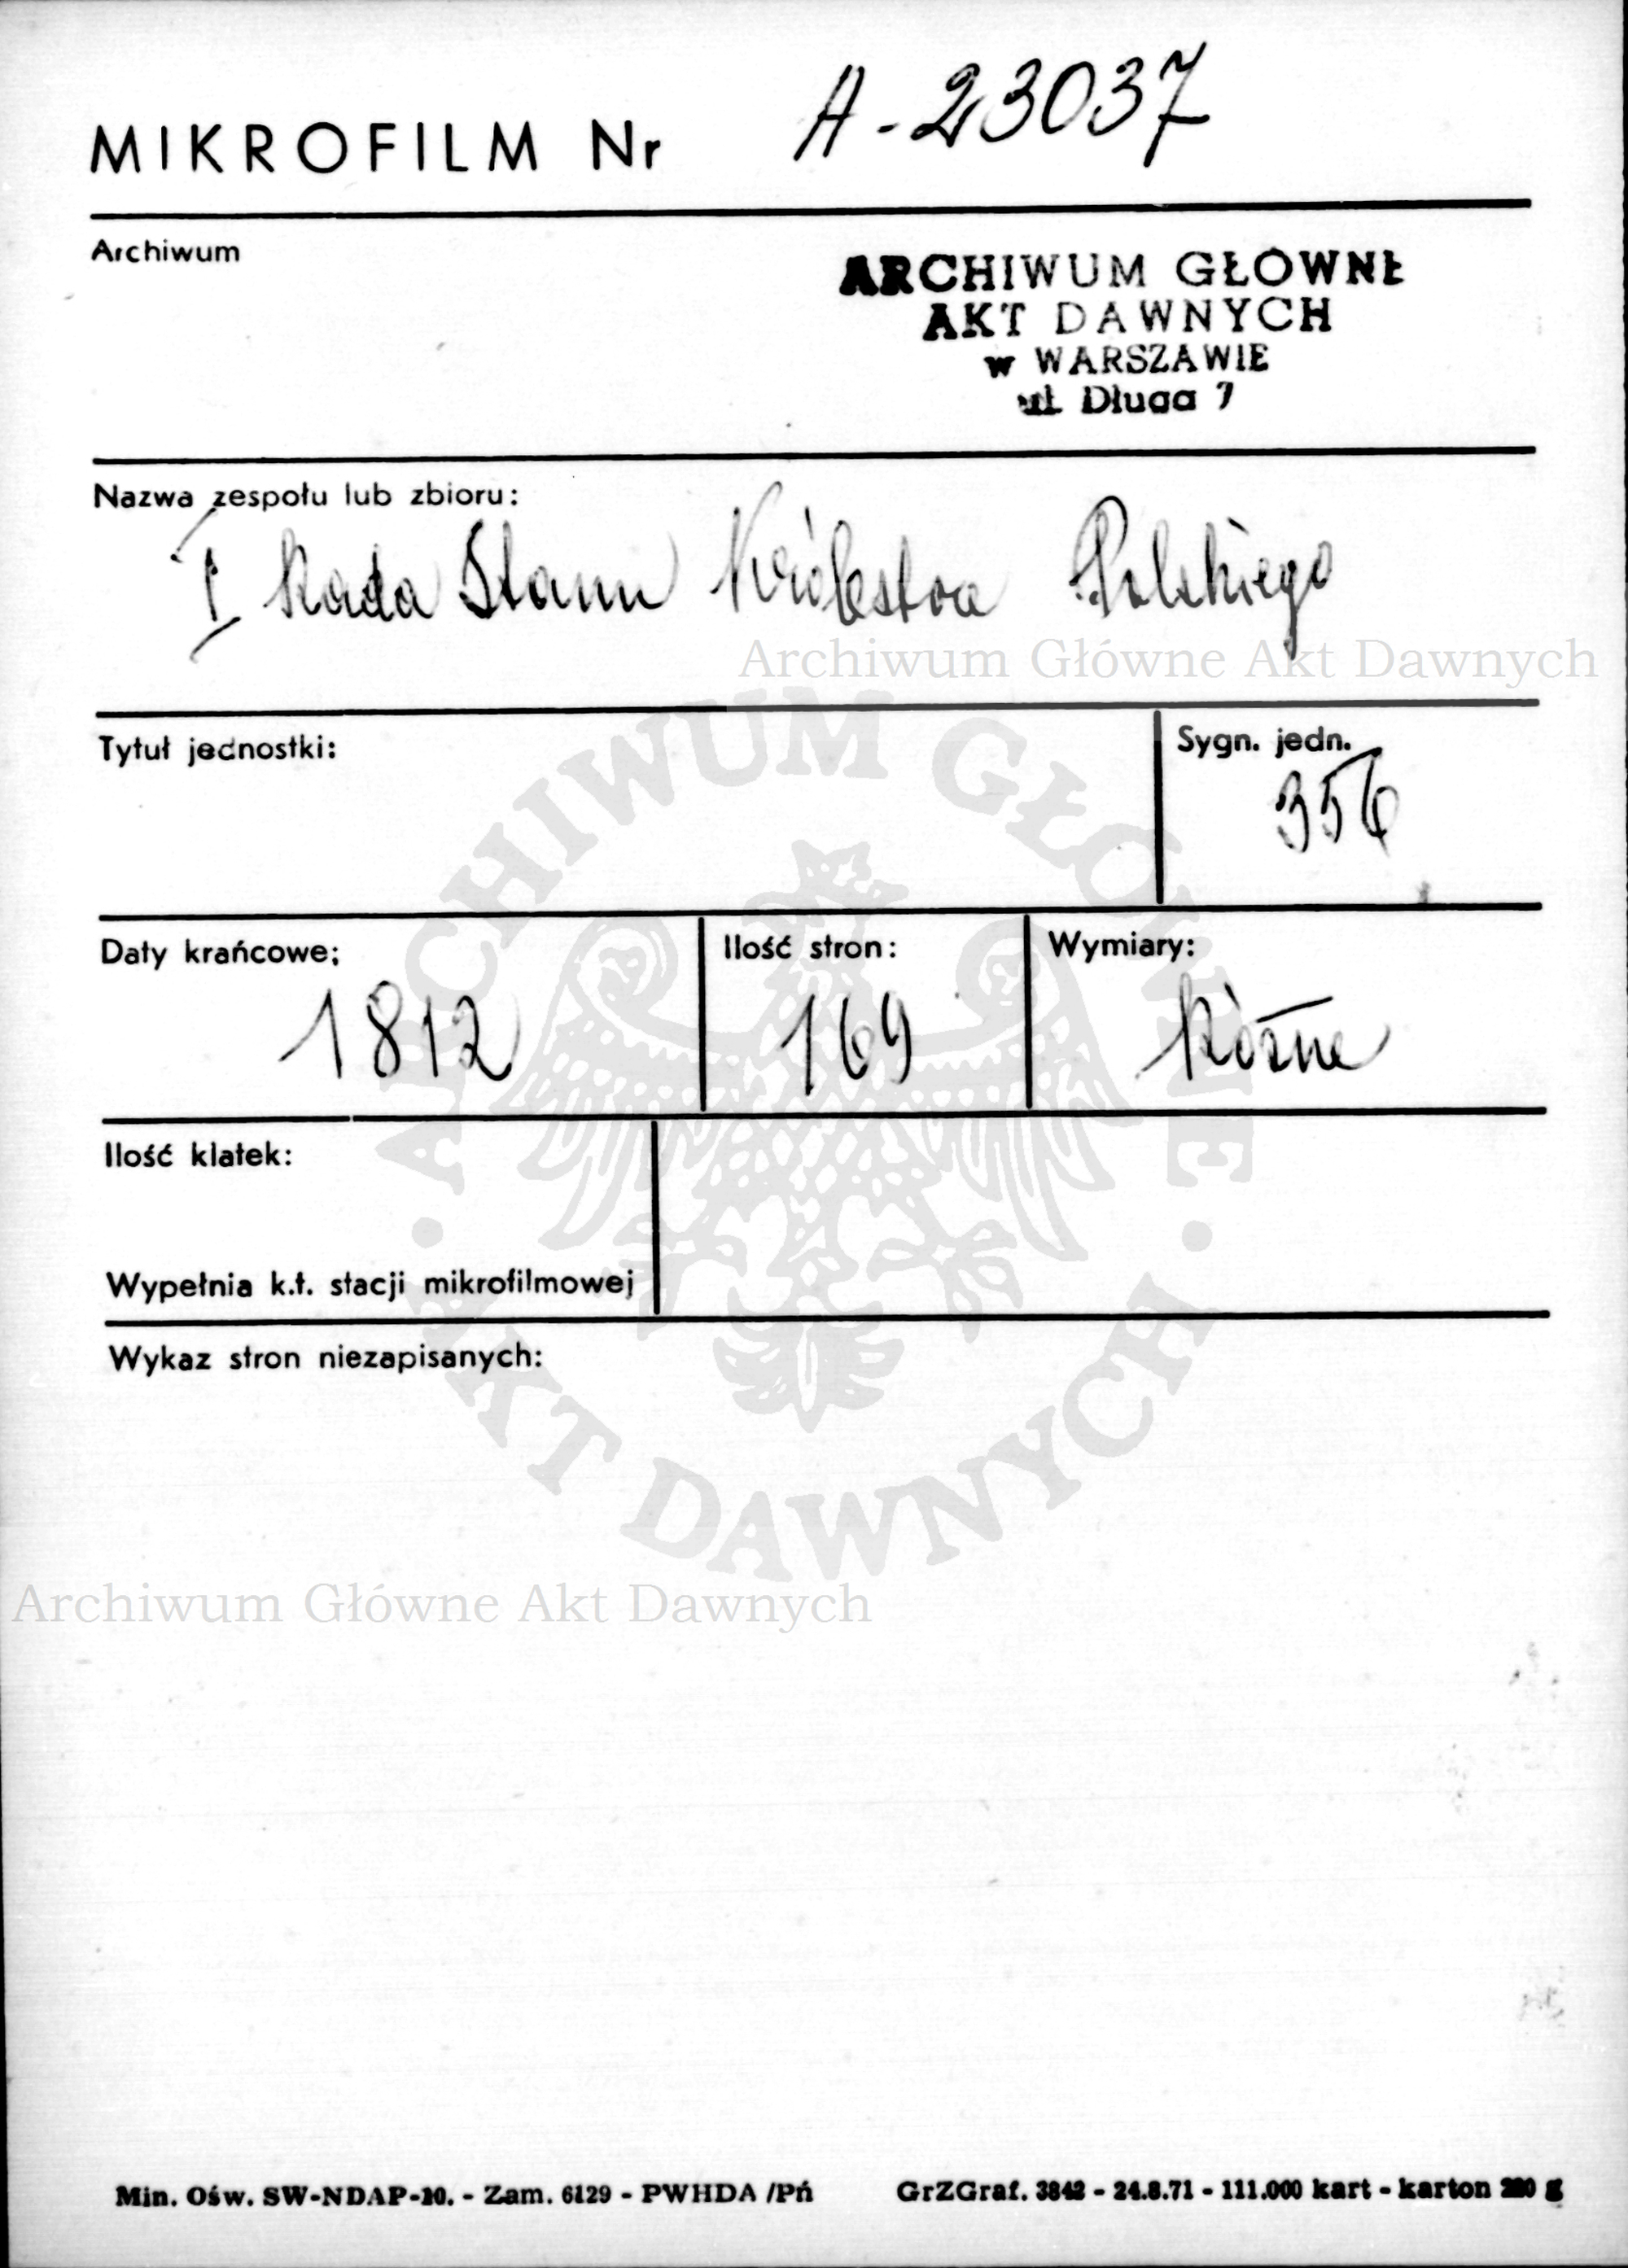 MIKROFILM Nr A-23037
Archiwum
ARCHIWUM GŁÓWNE
AKT DAWNYCH
w WARSZAWIE
ul. Długa 7
Nazwa zespołu lub zbioru:
I Rada Stanu Królestwa Polskiego
Archiwum Główne Akt Dawnych
Tytuł jednostki:
Sygn. jedn.
356
Daty krańcowe;
1812
Ilość stron:
169
Wymiary:
Różne
Ilość klatek:
Wypełnia k.t. stacji mikrofilmowej
Wykaz stron niezapisanych:
ARCHIWUM GŁÓWNE
· AKT DAWNYCH ·
Archiwum Główne Akt Dawnych
Min. Ośw. SW-NDAP-10. - Zam. 6129 - PWHDA /Pń
GrZGraf. 3842 - 24.8.71 - 111.000 kart - karton 220 g